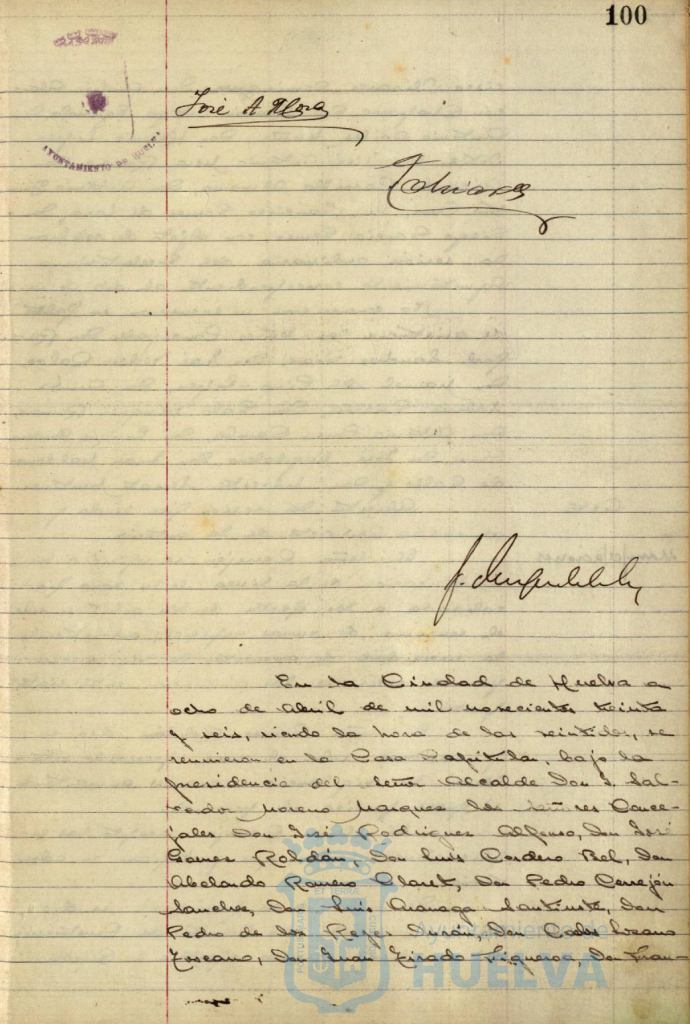 100
AYUNTAMIENTO DE HUELVA
José A Mora
En la Ciudad de Huelva a
ocho de Abril de mil novecientos treinta
y seis, siendo la hora de las veintidos, se
reunieron en la Casa Capitular, bajo la
presidencia del señor Alcalde Don S. Sal-
vador Moreno Marquez los señores Conce-
jales Don José Rodriguez Alfonso, Don José
Gomez Roldán, Don Luis Cordero Bel, Don
Abelardo Romero Claret, Don Pedro Cerrejón
Sanchez, Don Luis
Pedro de los Reyes Durán, Don Carlos Lozano
Toscano, Don Juan Tirado Figueroa, Don Fran-
Ayuntamiento de
HUELVA